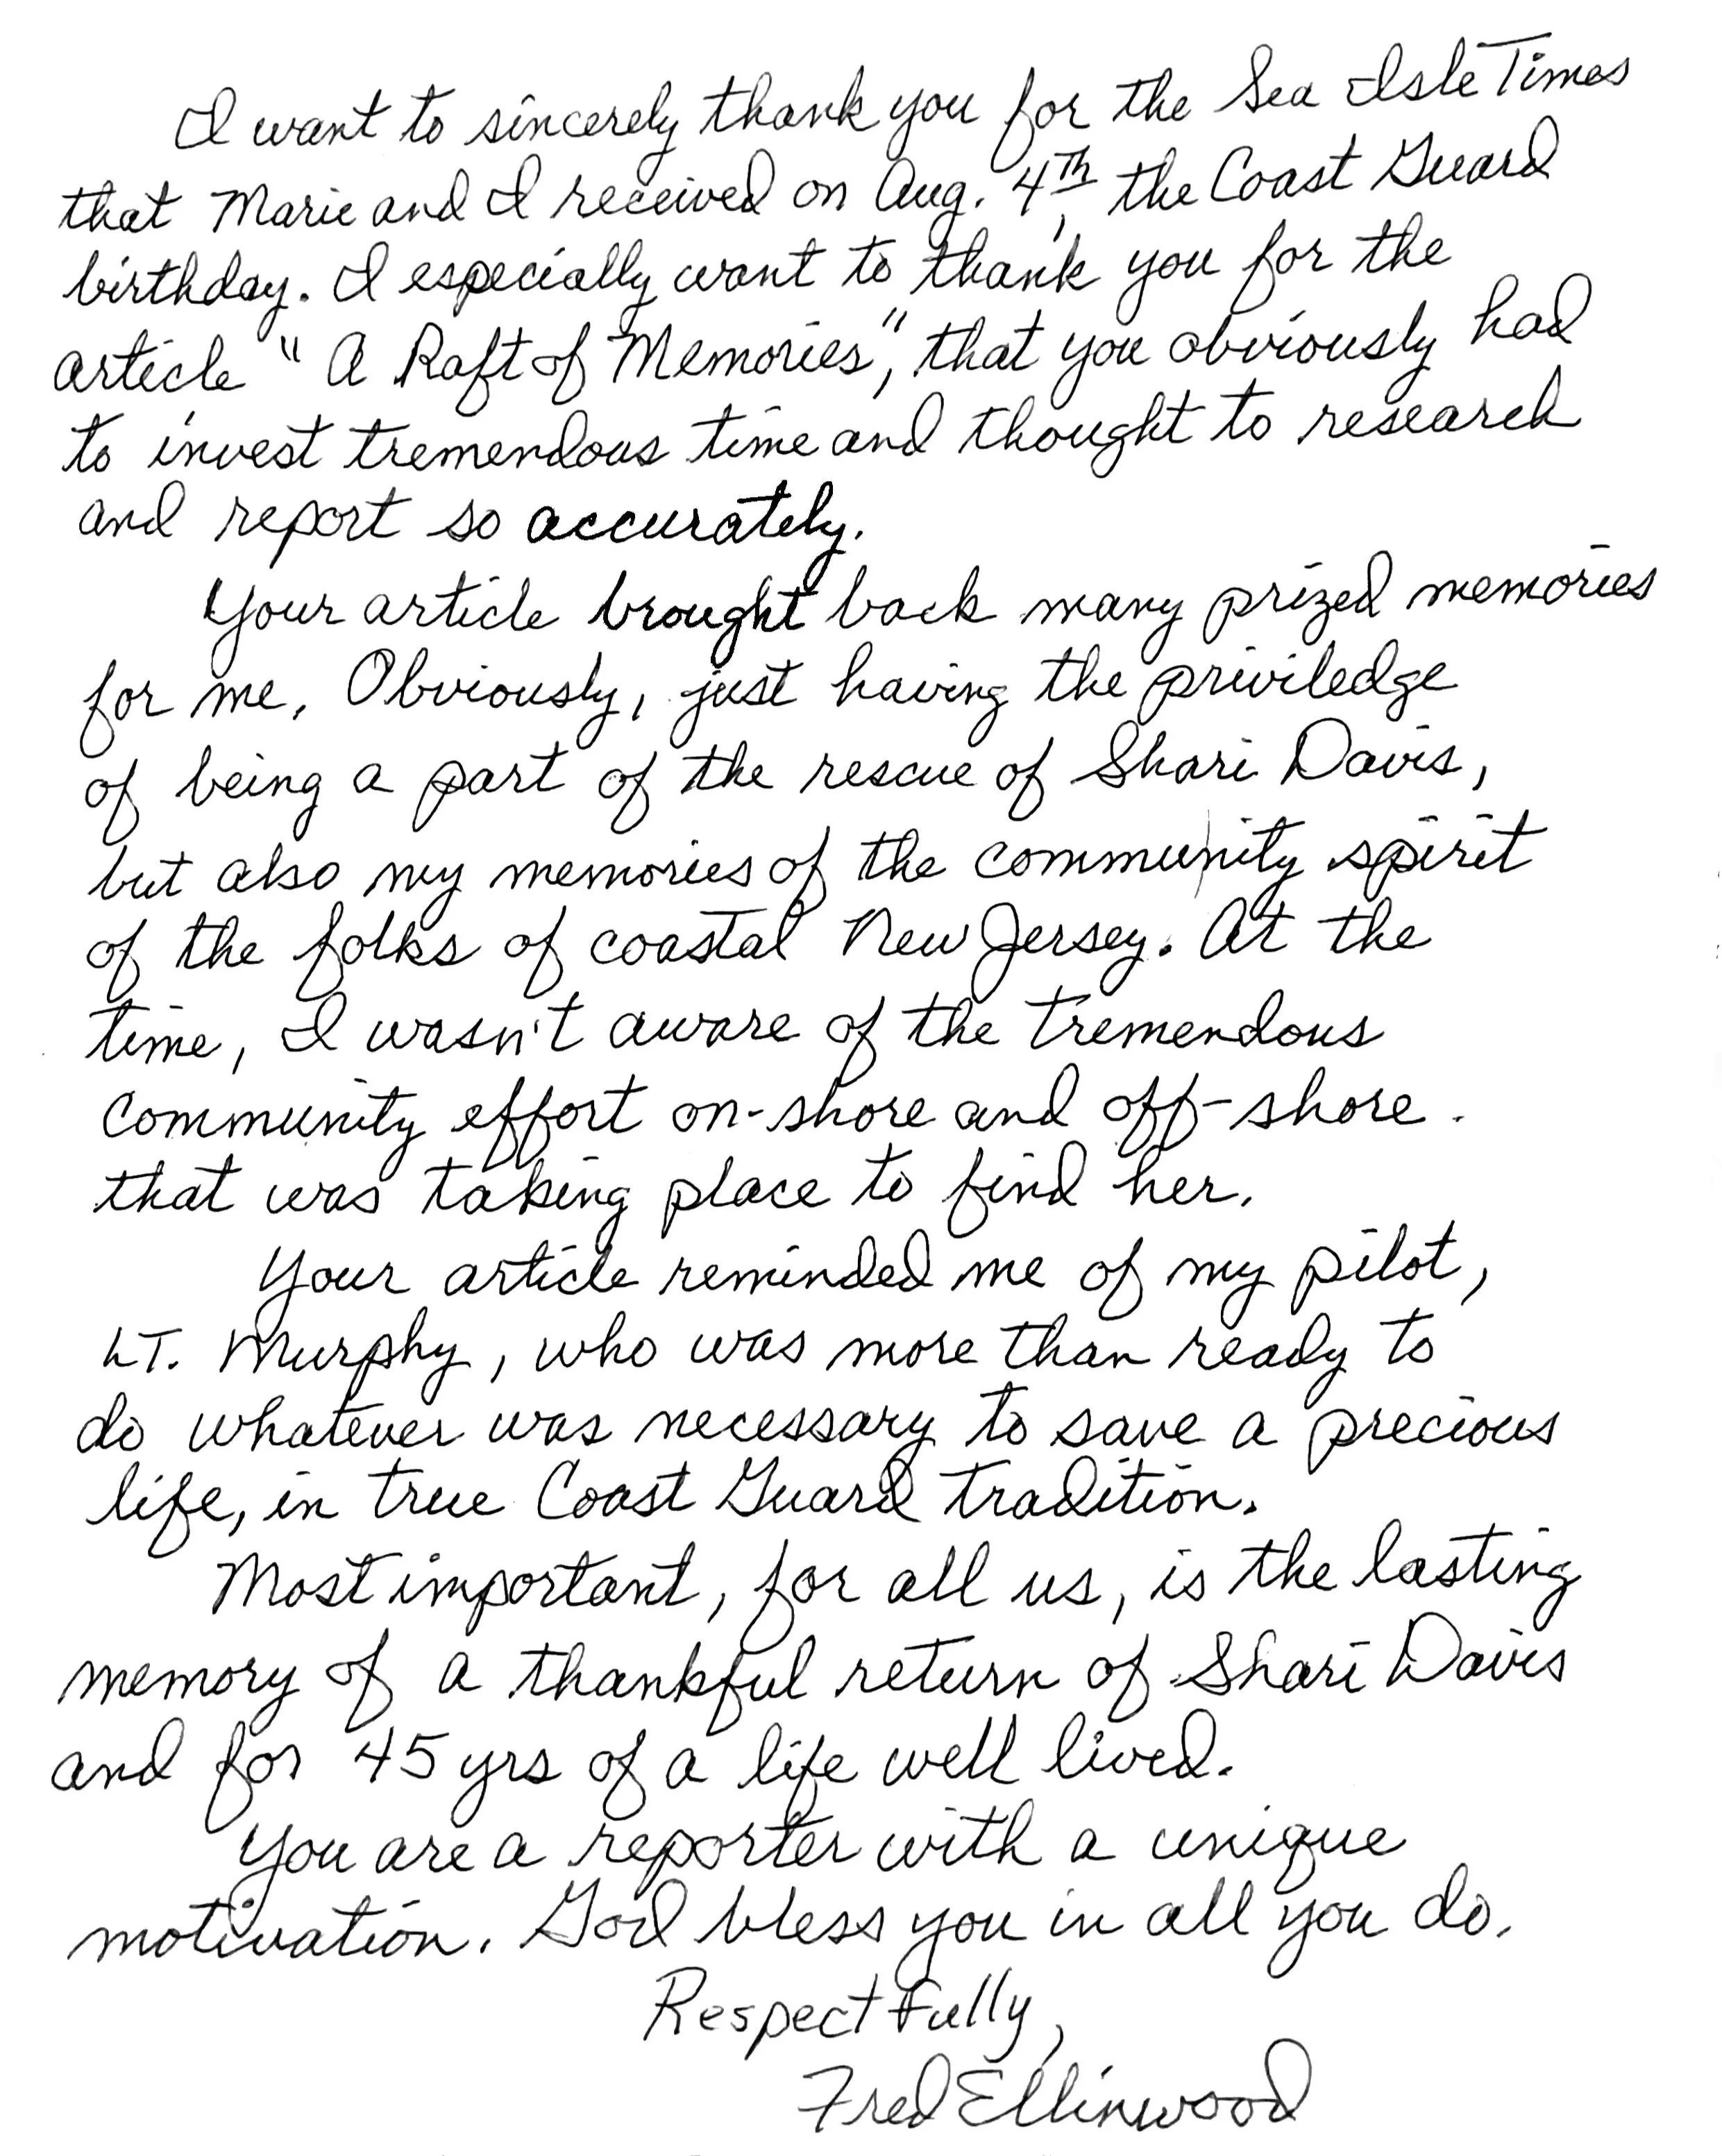 I want to sincerely thank you for the Sea Isle Times
that Marie and I received on Aug. 4th, the Coast Guard
birthday. I especially want to thank you for the
article "A Raft of Memories," that you obviously had
to invest tremendous time and thought to research
and report so accurately.
Your article brought back many prized memories
for me. Obviously, just having the priviledge
of being a part of the rescue of Shari Davis,
but also my memories of the community spirit
of the folks of coastal New Jersey. At the
time, I wasn't aware of the tremendous
community effort on-shore and off-shore
that was taking place to find her.
Your article reminded me of my pilot,
LT. Murphy, who was more than ready to
do whatever was necessary to save a precious
life, in true Coast Guard tradition.
Most important, for all us, is the lasting
memory of a thankful return of Shari Davis
and for 45 yrs of a life well lived.
You are a reporter with a unique
motivation. God bless you in all you do.
Respectfully,
Fred Ellinwood